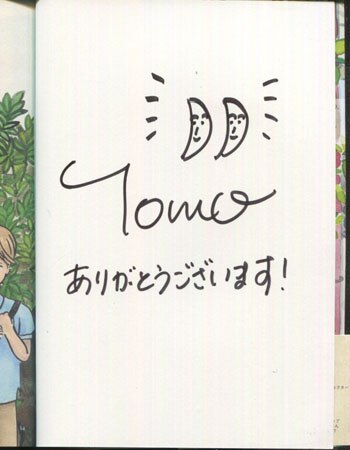 Tomo
ありがとうございます!